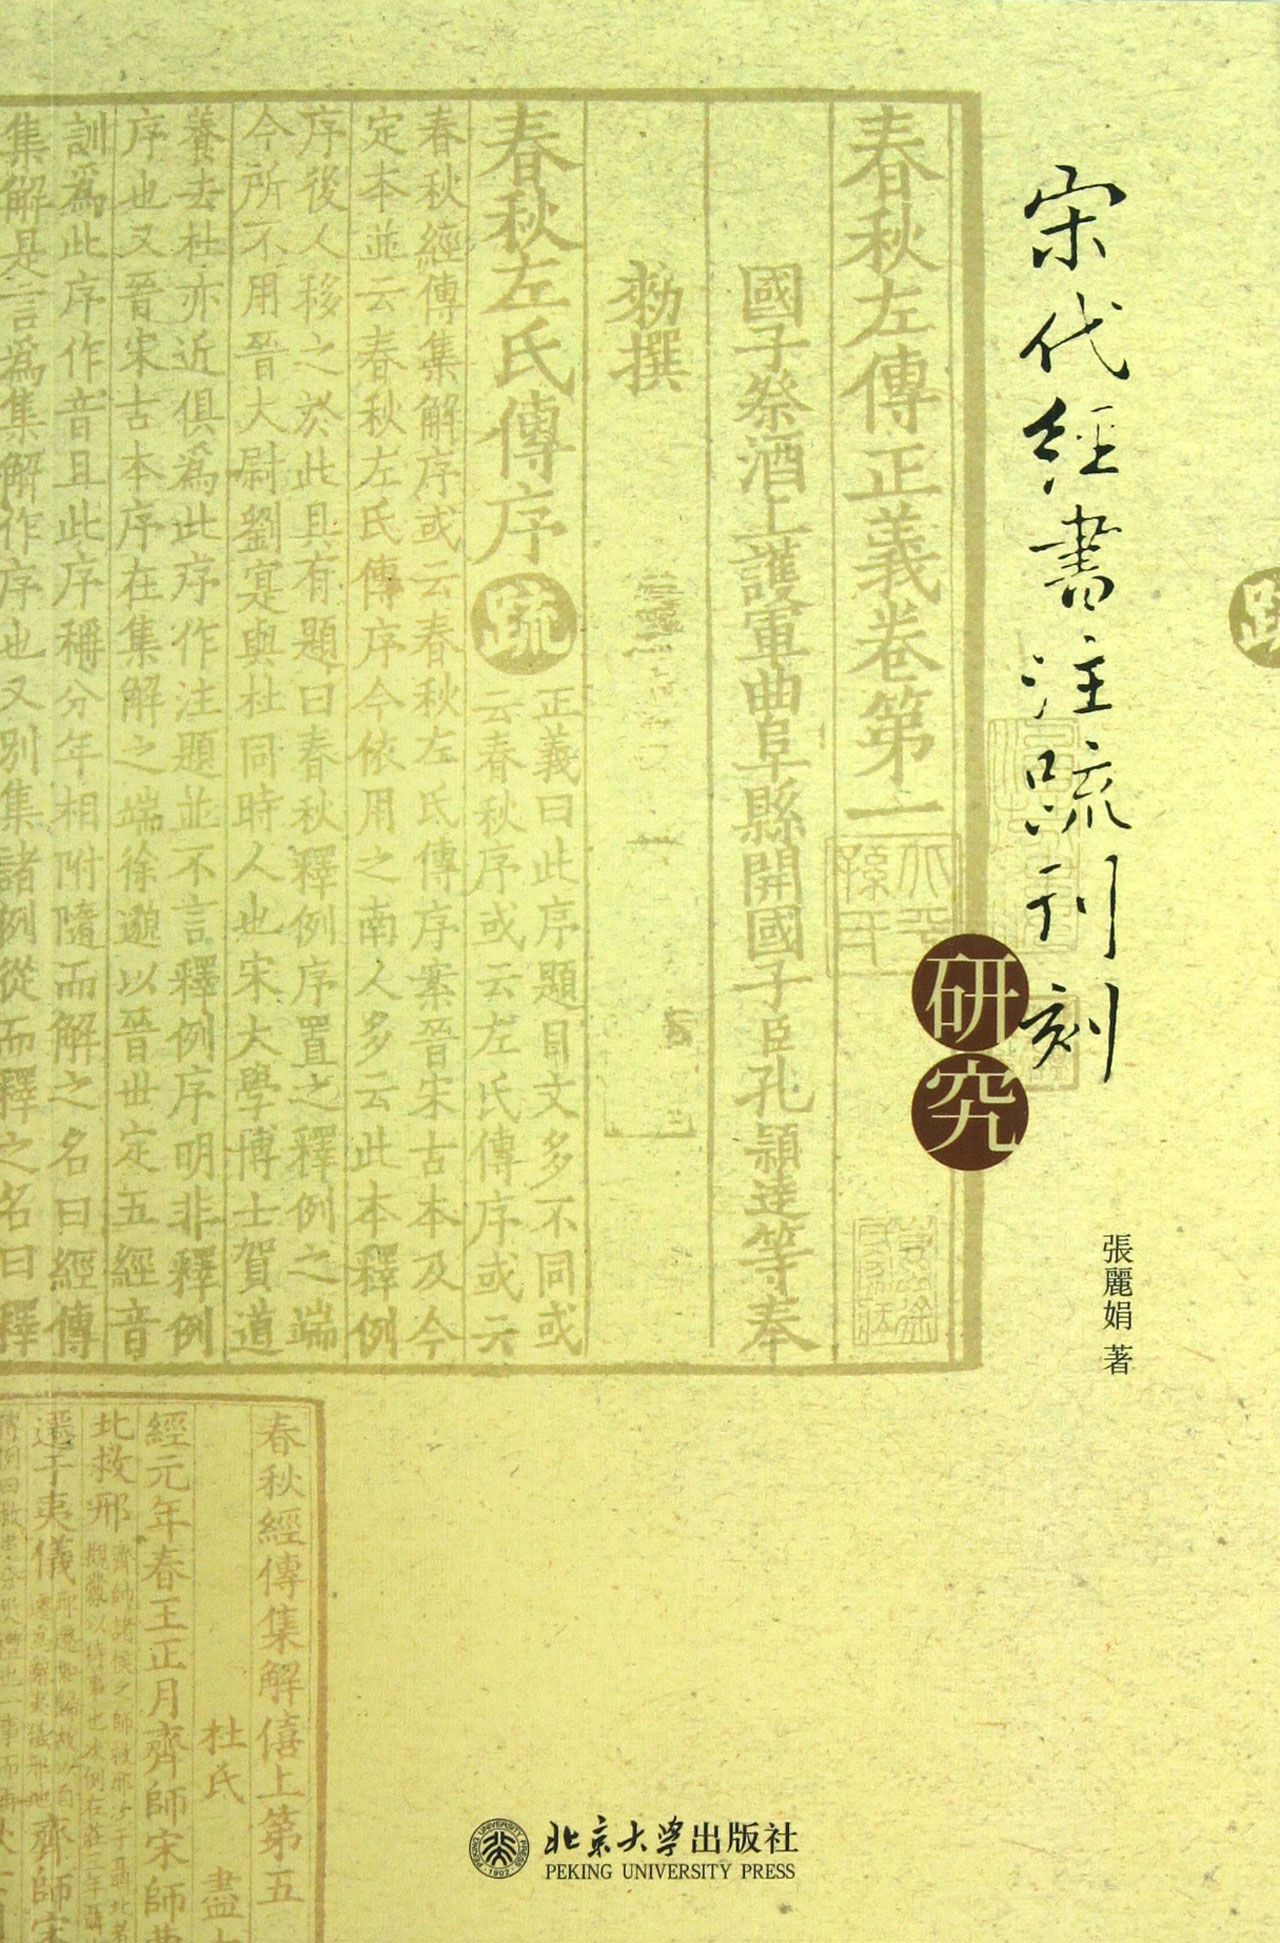 宋代經書注疏刊刻
研究
張麗娟 著
春秋左傳正義卷第一
國子祭酒上護軍曲阜縣開國子臣孔穎達等奉
勑撰
春秋左氏傳序
疏
正義曰此序題目文多不同或
云春秋序或云左氏傳序或云
春秋經傳集解序或云春秋左氏傳序案晉宋古本及今
定本並云春秋左氏傳序今依用之南人多云此本釋例
序後人移之於此且有題曰春秋釋例序置之釋例之端
今所不用晉大尉劉寔與杜同時人也宋大學博士賀道
養去杜亦近俱為此序作注題並不言釋例序明非釋例
序也又晉宋古本序在集解之端徐邈以晉世定五經音
訓為此序作音且此序稱分年相附隨而解之名曰經傳
集解是言為集解作序也又別集諸例從而釋之名曰釋
春秋經傳集解僖上第五
杜氏 盡
經元年春王正月齊師宋師
北救邢
齊師諸侯之師救邢次于聶北者
觀釁以待事也次例在莊三年聶
遷于夷儀
邢遷如歸故以自
齊師宋
北京大学出版社
PEKING UNIVERSITY PRESS
PEKING UNIVERSITY PRESS
1902